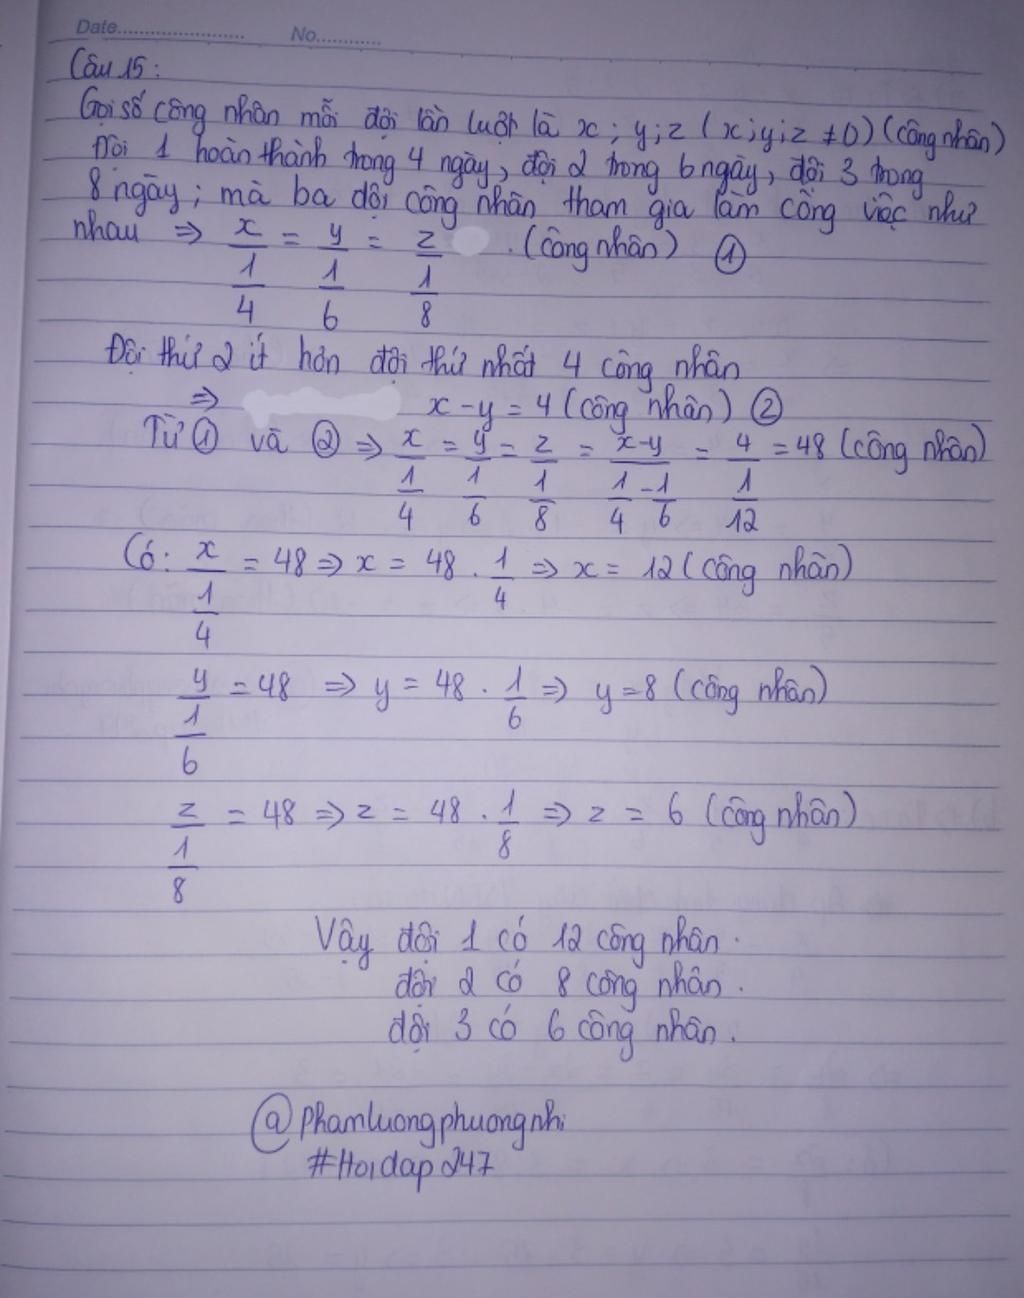 Date............ No............
Câu 15:
Gọi số công nhân mỗi đội lần lượt là x; y; z (x;y;z ≠ 0) (công nhân)
Đội 1 hoàn thành trong 4 ngày, đội 2 trong 6 ngày, đội 3 trong
8 ngày; mà ba đội công nhân tham gia làm công việc như
nhau ⇒ x/(1/4) = y/(1/6) = z/(1/8) . (công nhân) ①
Đội thứ 2 ít hơn đội thứ nhất 4 công nhân
⇒ x-y = 4 (công nhân) ②
Từ ① và ② ⇒ x/(1/4) = y/(1/6) = z/(1/8) = (x-y)/(1/4 - 1/6) = 4/(1/12) = 48 (công nhân)
Có: x/(1/4) = 48 ⇒ x = 48 . 1/4 ⇒ x = 12 (công nhân)
y/(1/6) = 48 ⇒ y = 48 . 1/6 ⇒ y = 8 (công nhân)
z/(1/8) = 48 ⇒ z = 48 . 1/8 ⇒ z = 6 (công nhân)
Vậy đội 1 có 12 công nhân.
đội 2 có 8 công nhân.
đội 3 có 6 công nhân.
@phamluongphuongnhi
#Hoidap247